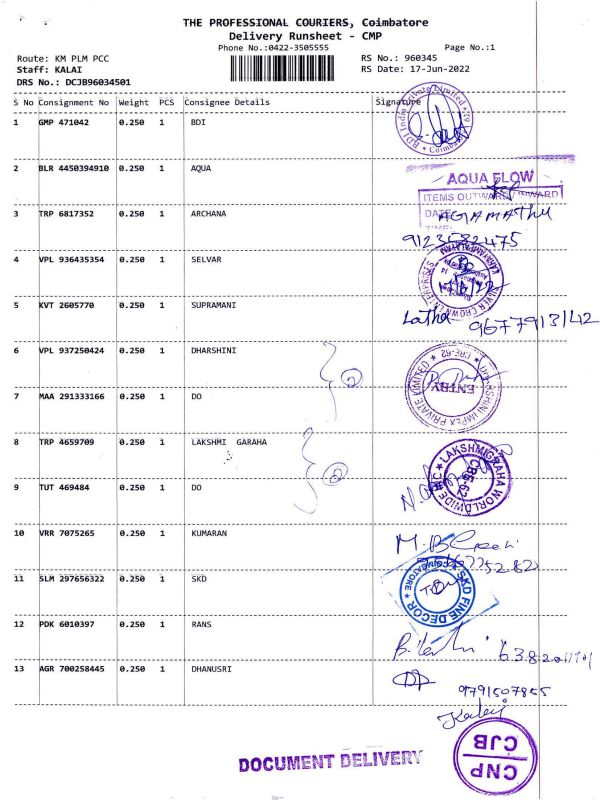 THE PROFESSIONAL COURIERS, Coimbatore
Delivery Runsheet - CMP
Phone No.:0422-3505555 Page No.:1
Route: KM PLM PCC RS No.: 960345
Staff: KALAI RS Date: 17-Jun-2022
DRS No.: DCJB96034501
S No Consignment No Weight PCS Consignee Details Signature
1 GMP 471042 0.250 1 BDI
BDI India Private Limited
2 BLR 4450394910 0.250 1 AQUA
AQUA FLOW
ITEMS OUTWARD / INWARD
DATE
TIME:
3 TRP 6817352 0.250 1 ARCHANA
9123582475
4 VPL 936435354 0.250 1 SELVAR
5 KVT 2605770 0.250 1 SUPRAMANI
Latha 9677913142
6 VPL 937250424 0.250 1 DHARSHINI
DHARSHINI IMPEX PRIVATE LIMITED * CBE-62 *
ENTRY
7 MAA 291333166 0.250 1 DO
2
8 TRP 4659709 0.250 1 LAKSHMI GARAHA
LAKSHMIGRAHA WORLDWIDE INC
CBE-62
9 TUT 469484 0.250 1 DO
2
10 VRR 7075265 0.250 1 KUMARAN
11 SLM 297656322 0.250 1 SKD
* SKD FINE DECOR * COIMBATORE
12 PDK 6010397 0.250 1 RANS
13 AGR 700258445 0.250 1 DHANUSRI
9791507855
Kalai
DOCUMENT DELIVERY
CNP
CJB